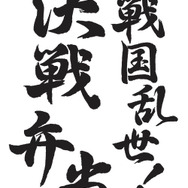 戦国乱世!
決戦弁当